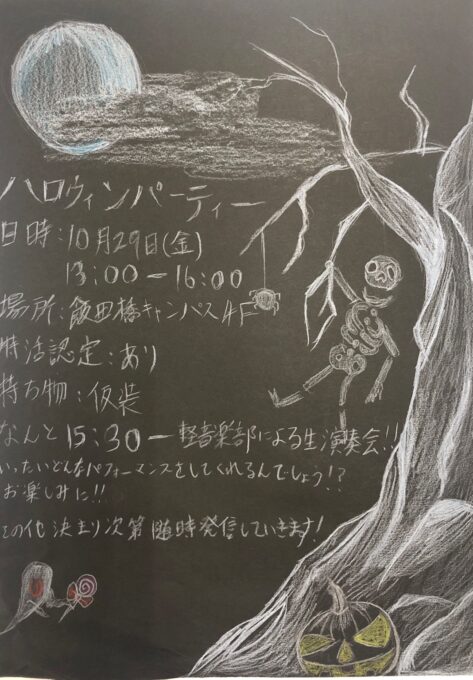 ハロウィンパーティー
日時:10月29日(金)
13:00ー16:00
場所:飯田橋キャンパス4F
特活認定:あり
持ち物:仮装
なんと15:30ー軽音楽部による生演奏会!!
いったいどんなパフォーマンスをしてくれるんでしょう!?
お楽しみに!!
その他決まり次第随時発信していきます!